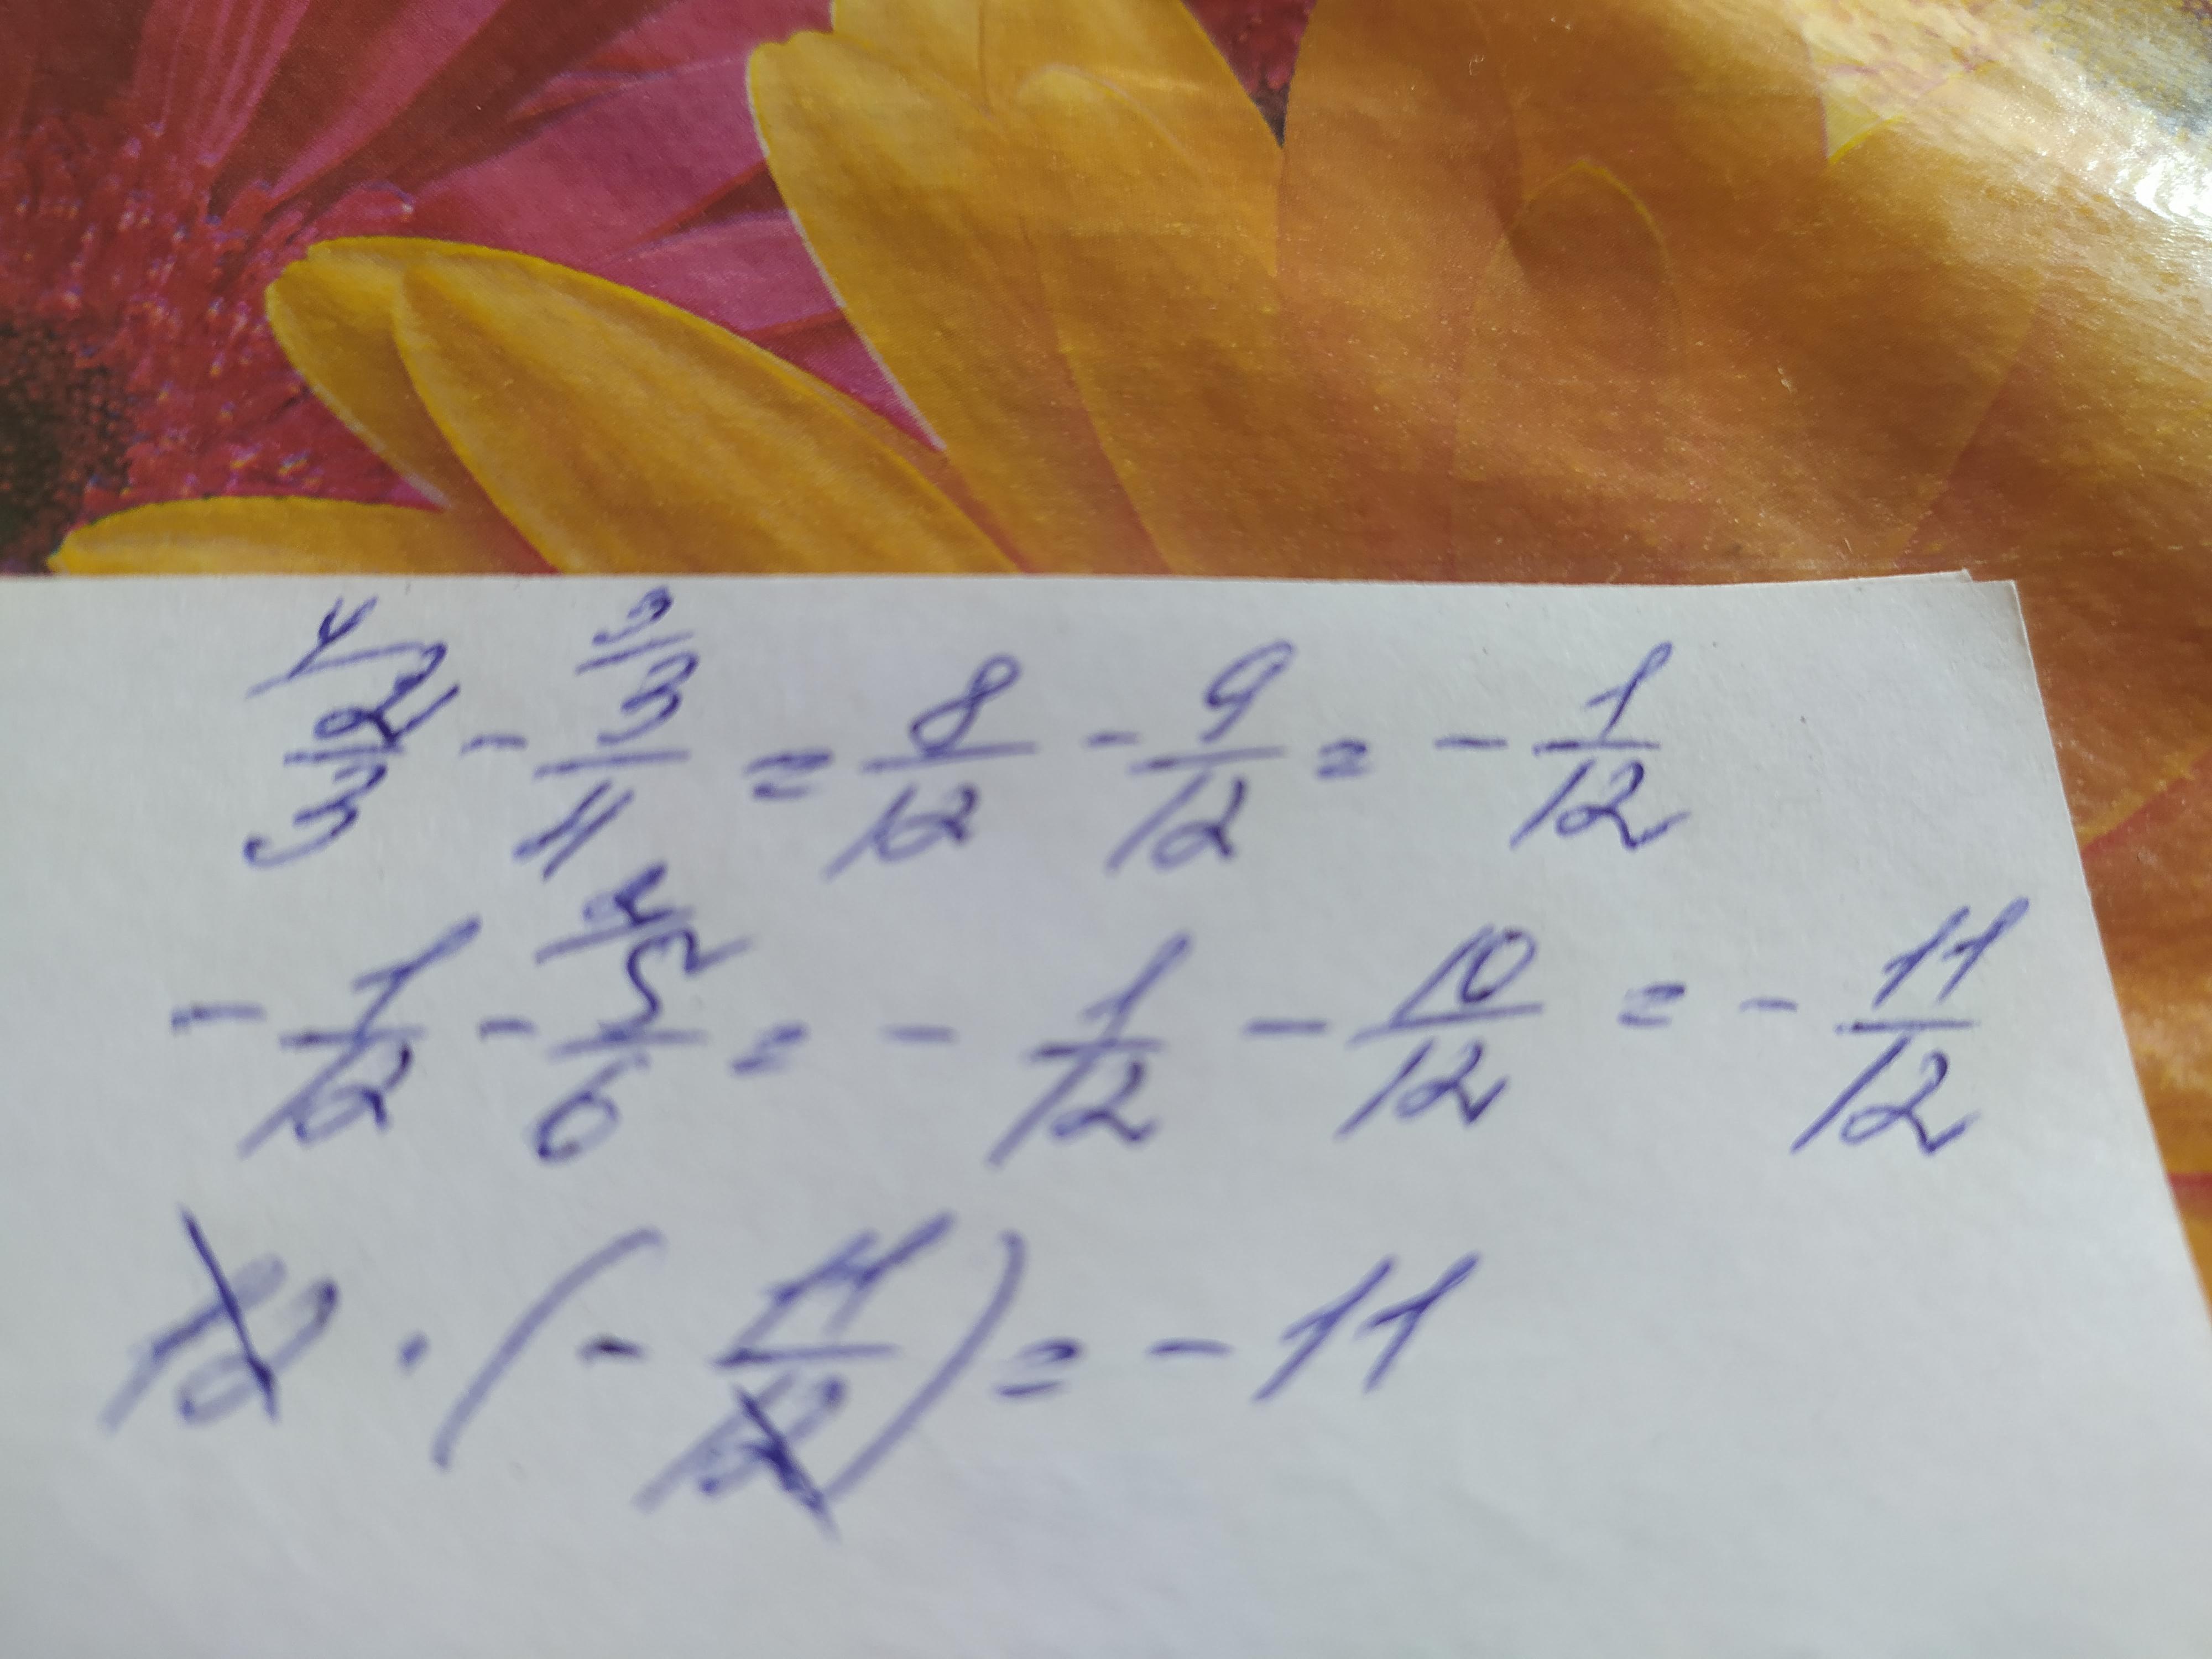 4/ 2/3 - 3/ 3/4 = 8/12 - 9/12 = - 1/12
- 1/12 - 2/ 5/6 = - 1/12 - 10/12 = - 11/12
12 · (- 11/12) = - 11